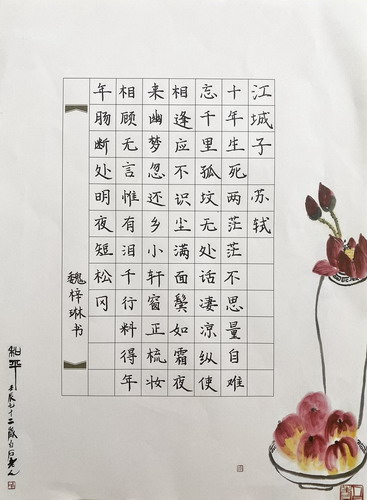 江城子 苏轼
十年生死两茫茫不思量自难
忘千里孤坟无处话凄凉纵使
相逢应不识尘满面鬓如霜夜
来幽梦忽还乡小轩窗正梳妆
相顾无言惟有泪千行料得年
年肠断处明夜短松冈
魏梓琳书
和平
壬辰九十二岁白石老人